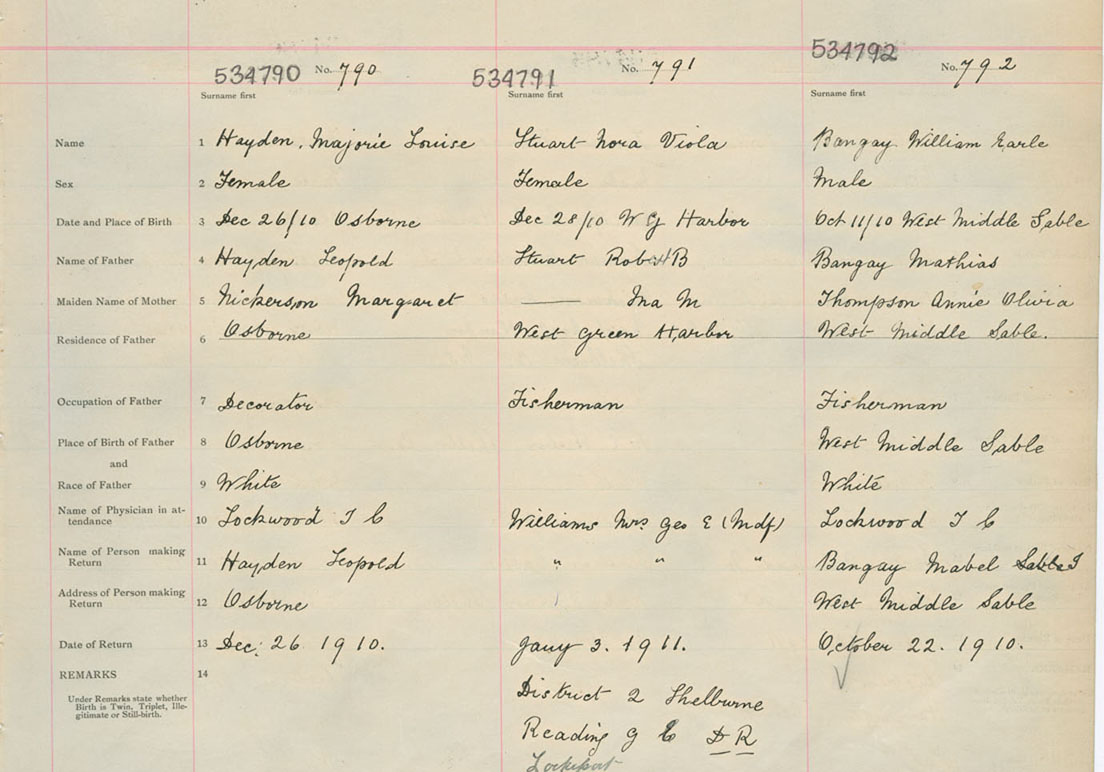 534790 No. 790 534791 No. 791 534792 No. 792
Surname first Surname first Surname first
Name 1 Hayden, Majorie Louise Stuart Nora Viola Bangay William Earle
Sex 2 Female Female Male
Date and Place of Birth 3 Dec 26/10 Osborne Dec 28/10 W G Harbor Oct 11/10 West Middle Sable
Name of Father 4 Hayden Leopold Stuart Robert B Bangay Mathias
Maiden Name of Mother 5 Nickerson Margaret —— Ina M Thompson Annie Olivia
Residence of Father 6 Osborne West Green Harbor West Middle Sable.
Occupation of Father 7 Decorator Fisherman Fisherman
Place of Birth of Father 8 Osborne West Middle Sable
and
Race of Father 9 White White
Name of Physician in at-
tendance 10 Lockwood T C Williams Mrs Geo E (Mdf) Lockwood T C
Name of Person making
Return 11 Hayden Leopold " " " Bangay Mabel
Address of Person making
Return 12 Osborne West Middle Sable
Date of Return 13 Dec: 26 1910. Jany 3. 1911. October 22. 1910.
REMARKS 14
Under Remarks state whether
Birth is Twin, Triplet, Ille-
gitimate or Still-birth.
District 2 Shelburne
Reading G E D R
Lockeport